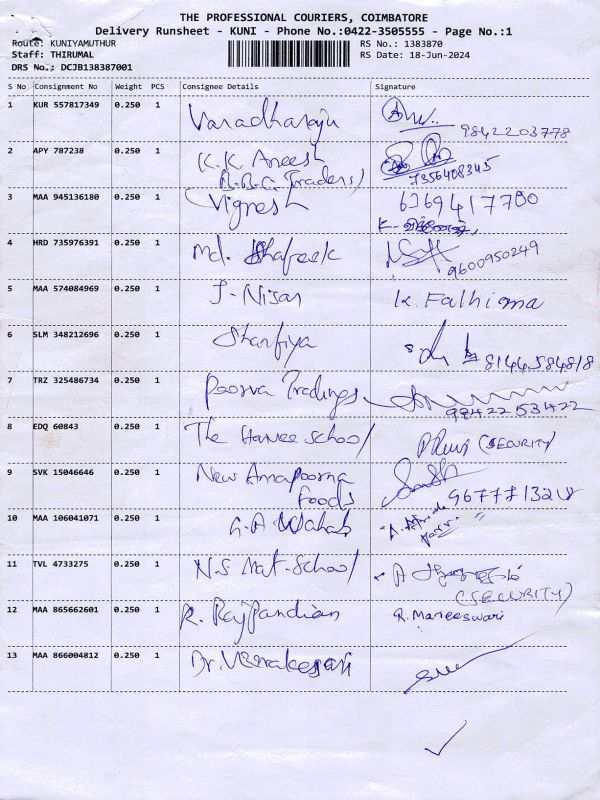 THE PROFESSIONAL COURIERS, COIMBATORE
Delivery Runsheet - KUNI - Phone No.:0422-3505555 - Page No.:1
Route: KUNIYAMUTHUR RS No.: 1383870
Staff: THIRUMAL RS Date: 18-Jun-2024
DRS No.: DCJB138387001
S No Consignment No Weight PCS Consignee Details Signature
1 KUR 557817349 0.250 1 Varadharaju
9842203778
2 APY 787238 0.250 1 K.K. Aneesh
(A.B.C. Traders) 7356408345
3 MAA 945136180 0.250 1 Vignesh 6369417700
4 HRD 735976391 0.250 1 Md. Shafeek
9600950249
5 MAA 574084969 0.250 1 J. Nisar K. Fathima
6 SLM 348212696 0.250 1 Sharfiya
8144584818
7 TRZ 325486734 0.250 1 Poorva Tradings
9842253422
8 EDQ 60843 0.250 1 The Hanee School (SECURITY)
9 SVK 15046646 0.250 1 New Annapoorna
Foods 9677713218
10 MAA 106041071 0.250 1 G.A Wahab
11 TVL 4733275 0.250 1 N.S Mat. School
(SECURITY)
12 MAA 865662601 0.250 1 R. Rajpandian R. Mareeswari
13 MAA 866004812 0.250 1 Dr. Veerakesari